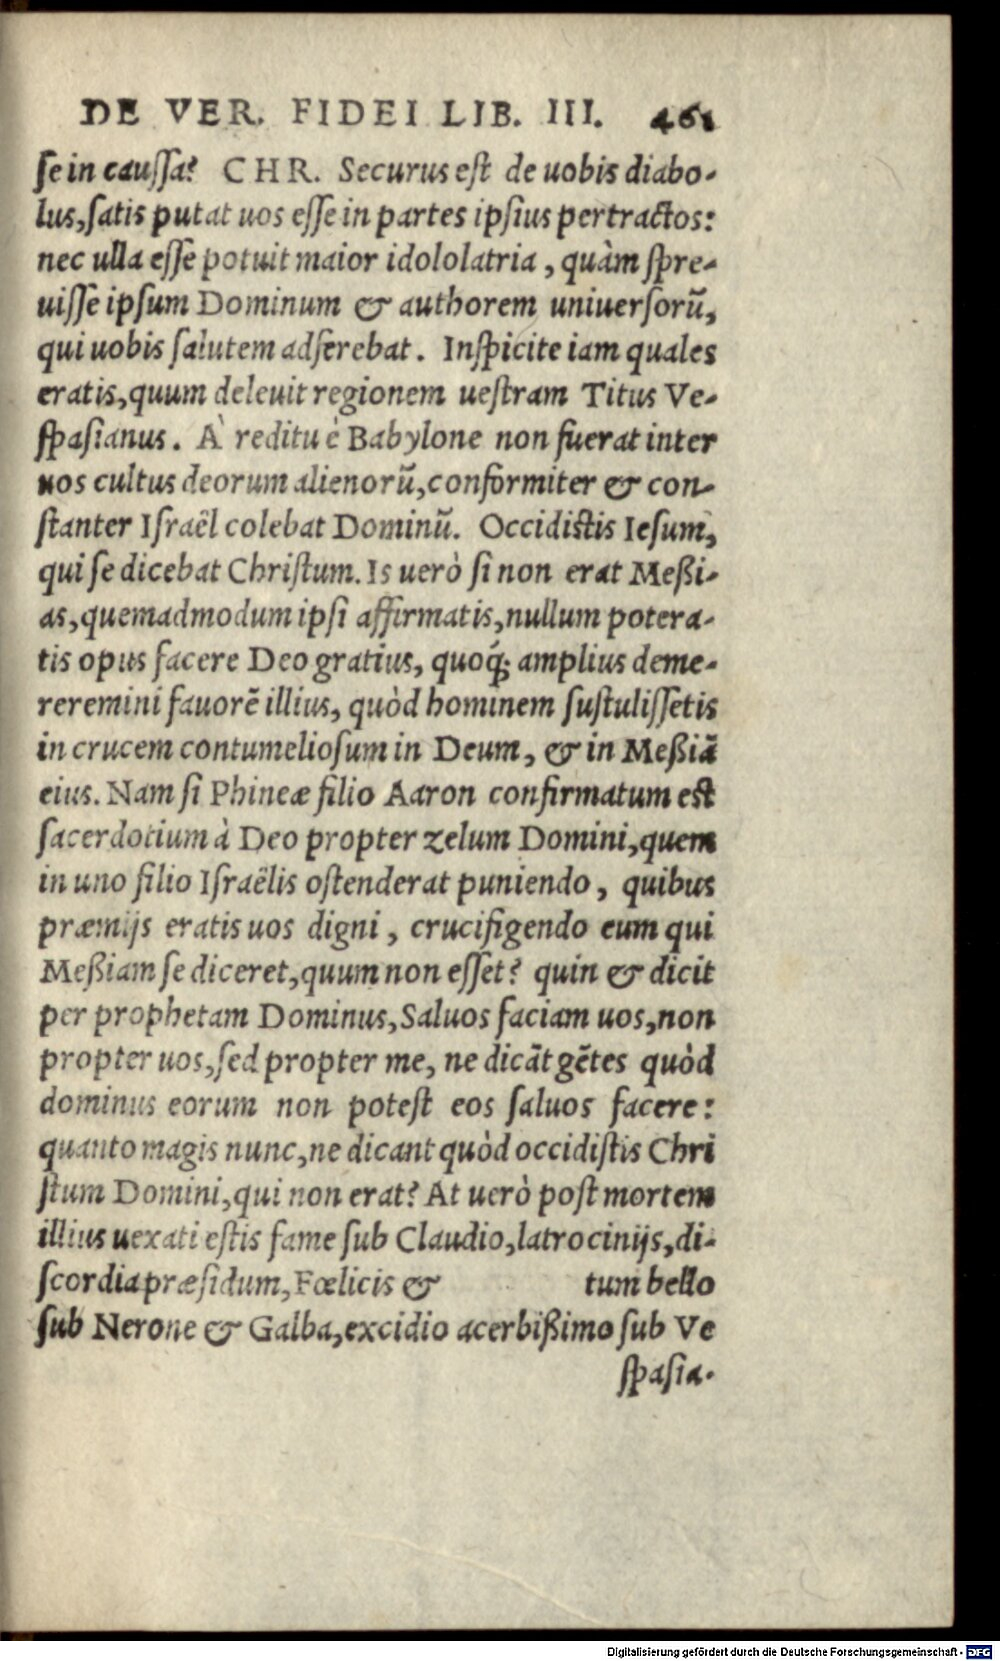 DE VER. FIDEI LIB. III. 461
ſe in cauſſa? CHR. Securus eſt de uobis diabo-
lus, ſatis putat uos eſſe in partes ipſius pertractos:
nec ulla eſſe potuit maior idololatria, quàm ſpre-
uiſſe ipſum Dominum & authorem uniuerſorũ,
qui uobis ſalutem adferebat. Inſpicite iam quales
eratis, quum deleuit regionem ueſtram Titus Ve-
ſpaſianus. À reditu è Babylone non fuerat inter
uos cultus deorum alienorũ, conformiter & con-
ſtanter Iſraël colebat Dominũ. Occidistis Ieſum,
qui ſe dicebat Chriſtum. Is uerò ſi non erat Meßi-
as, quemadmodum ipſi affirmatis, nullum potera-
tis opus facere Deo gratius, quoq́; amplius deme-
reremini fauorẽ illius, quòd hominem ſuſtuliſſetis
in crucem contumelioſum in Deum, & in Meßiã
eius. Nam ſi Phineæ filio Aaron confirmatum est
ſacerdotium à Deo propter zelum Domini, quem
in uno filio Iſraëlis oſtenderat puniendo, quibus
præmijs eratis uos digni, crucifigendo eum qui
Meßiam ſe diceret, quum non eſſet? quin & dicit
per prophetam Dominus, Saluos faciam uos, non
propter uos, ſed propter me, ne dicãt gẽtes quòd
dominus eorum non poteſt eos ſaluos facere:
quanto magis nunc, ne dicant quòd occidiſtis Chri
ſtum Domini, qui non erat? At uerò poſt mortem
illius uexati eſtis fame ſub Claudio, latrocinijs, di-
ſcordia præſidum, Fœlicis & tum bello
ſub Nerone & Galba, excidio acerbißimo ſub Ve
ſpaſia-
Digitalisierung gefördert durch die Deutsche Forschungsgemeinschaft - DFG